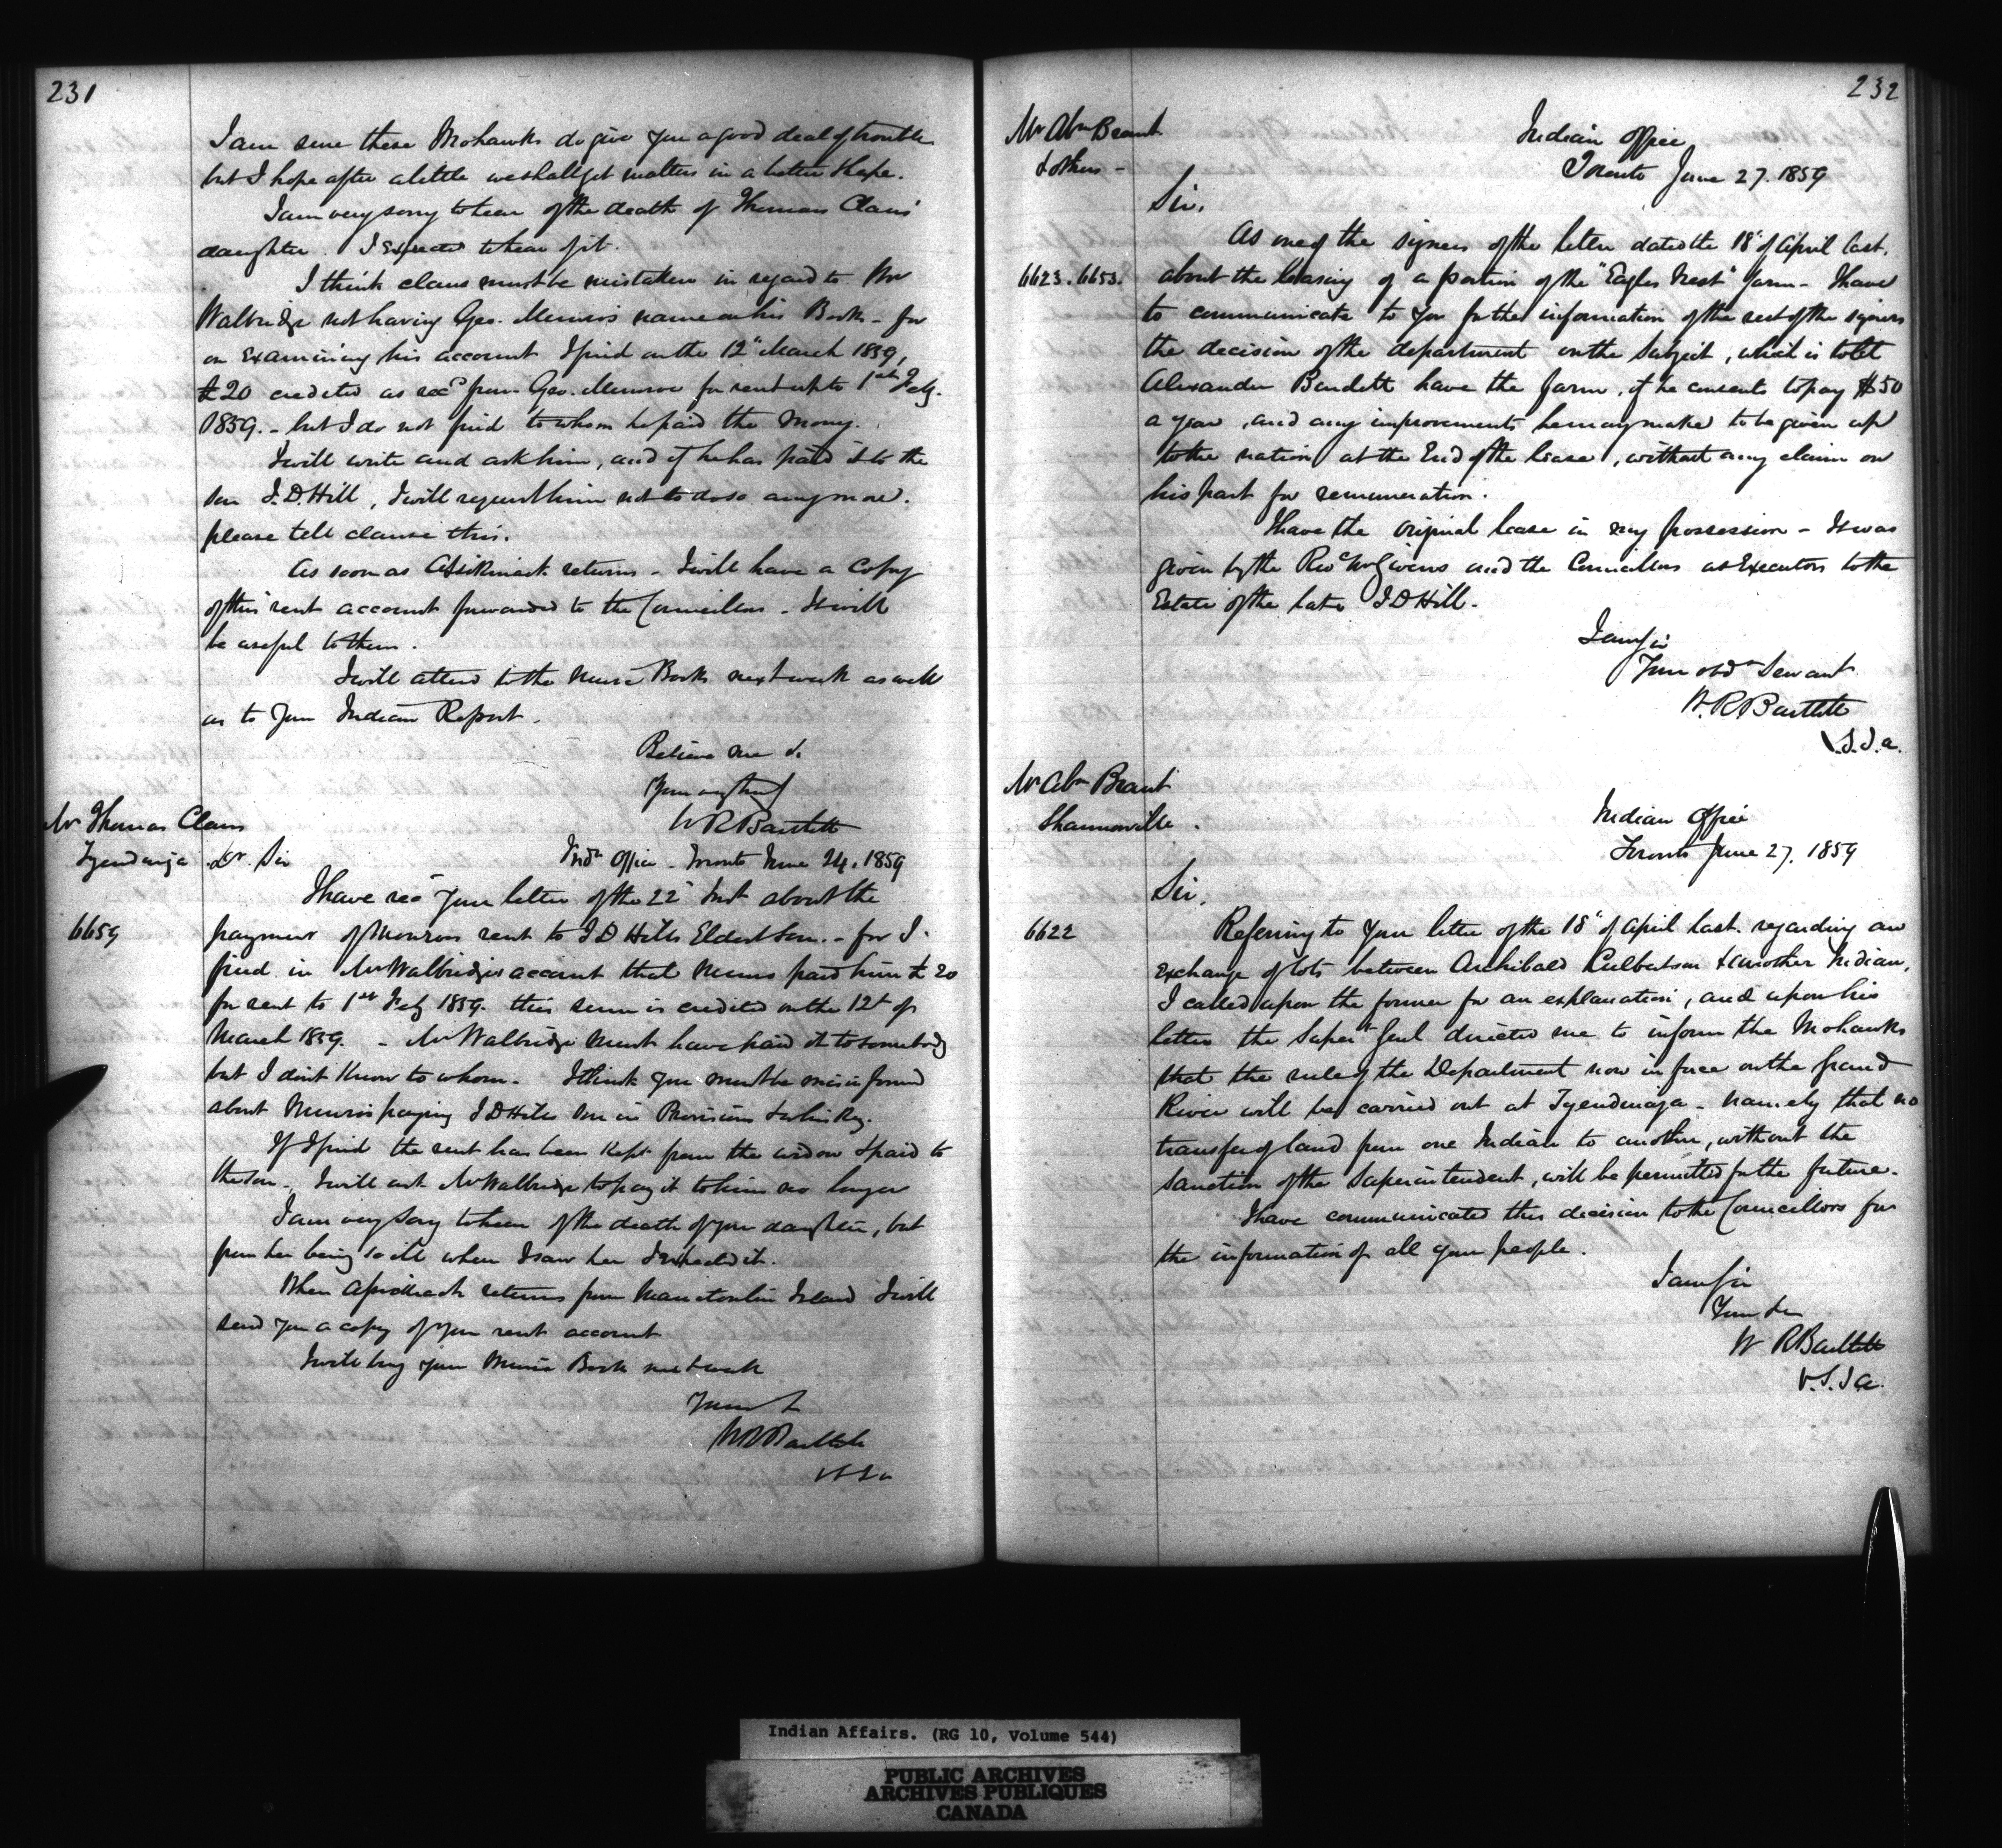 231
I am sure these Mohawks do give you a good deal of trouble
but I hope after a little we shall get matters in a better shape.
I am very sorry to hear of the death of Thomas Claus'
daughter. I expected to hear of it.
I think claus must be mistaken in regard to Mr
Walbridge not having Geo. Munro's name on his Books - for
on examining his account I find on the 12" March 1859,
£20 credited as recd from Geo. Munroe for rent up to 1st Feby.
1859. - but I do not find to whom he paid the money.
I will write and ask him, and if he has paid it to the
son J.D. Hill, I will request him not to do so any more.
please tell clause this.
As soon as Assikinack returns - I will have a Copy
of this rent account forwarded to the Councillors - It will
be useful to them.
I will attend to the Music Books next week as well
as to your Indian Report.
Believe me &
Yours very truly
W R Bartlett
Mr Thomas Claus
Tyendinaga
Dr. Sir
Indn Office - Toronto June 24. 1859
I have recd your letter of the 22d Inst about the
6659
payment of Monros rent to J D Hills Eldest Son. - for I
find in Mr Walbridges account that Munro paid him £20
for rent to 1st Feby 1859. this sum is credited on the 12t of
March 1859. - Mr Walbridge must have paid it to somebody
but I dont know to whom. I think you must be misinformed
about Munro's paying J D Hills son in Provisions & whiskey.
If I find the rent has been kept from the widow & paid to
the son - I will ask Mr Walbridge to pay it to him no longer
I am very sorry to hear of the death of your daughter, but
from her being so ill when I saw her I expected it.
When Assikinack returns from Manitoulin Island I will
send you a copy of your rent account
I will bring your Music Book next week
Yours &
W R Bartlett
V S I a
232
Mr Abm Brant
& others -
Indian Office
Toronto June 27. 1859
Sir,
As one of the signers of the letter dated the 18" of April last.
6623. 6653.
about the leasing of a portion of the "Eagles Nest" farm - I have
to communicate to you for the information of the rest of the signers
the decision of the department on the subject, which is to let
Alexander Burdett have the farm, if he consents to pay $50
a year, and any improvements he may make to be given up
to the nation at the End of the lease, without any claim on
his part for remuneration.
I have the original lease in my possession - It was
given by the Revd Mr Givins and the Councillors as Executors to the
Estate of the late J D Hill.
I am Sir
Your obdt Servant
W. R Bartlett
V.S.I.a.
Mr Abm Brant
Shannonville.
Indian Office
Toronto June 27. 1859
Sir,
6622
Referring to your letter of the 18" of April last. regarding an
exchange of lots between Archibald Culbertson & another Indian,
I called upon the former for an explanation, and upon his
letter the Super Genl directed me to inform the Mohawks
that the rule of the Department now in force on the Grand
River will be carried out at Tyendinaga - namely that no
transfer of land from one Indian to another, without the
sanction of the Superintendent, will be permitted for the future.
I have communicated this decision to the Councillors for
the information of all your people.
I am Sir
Your &c
W R Bartlett
V.S.I a.
Indian Affairs. (RG 10, Volume 544)
PUBLIC ARCHIVES
ARCHIVES PUBLIQUES
CANADA